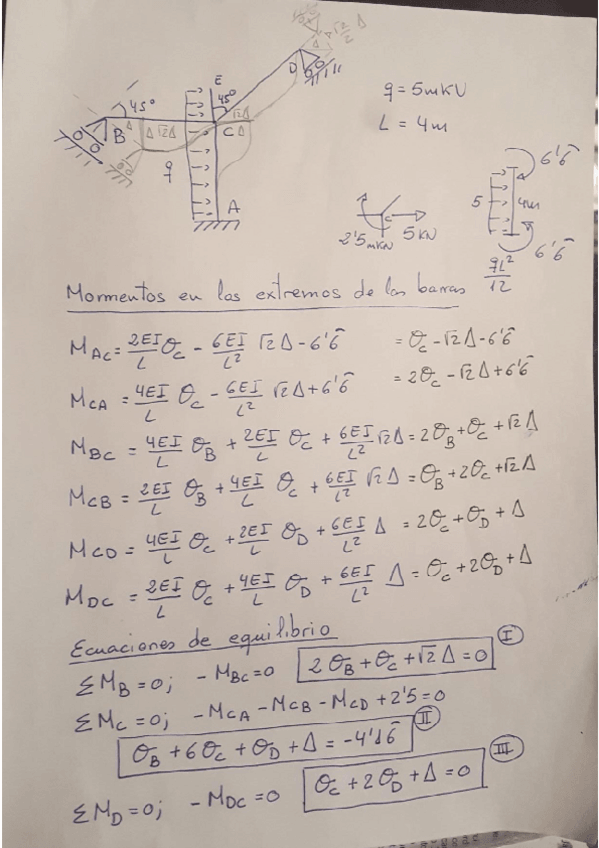 E
45°
45°
B
Δ
Δ
√2Δ
C
√2Δ
Δ
D
Δ
√2/2 Δ
q
A
q = 5mkN
L = 4m
2'5mkN
C
5KN
5
4m
6'6̂
6'6̂
qL²/12
Mormentos en los extremos de las barras
M_AC = 2EI/L θ_C - 6EI/L² √2Δ - 6'6̂ = θ_C - √2Δ - 6'6̂
M_CA = 4EI/L θ_C - 6EI/L² √2Δ + 6'6̂ = 2θ_C - √2Δ + 6'6̂
M_BC = 4EI/L θ_B + 2EI/L θ_C + 6EI/L² √2Δ = 2θ_B + θ_C + √2Δ
M_CB = 2EI/L θ_B + 4EI/L θ_C + 6EI/L² √2Δ = θ_B + 2θ_C + √2Δ
M_CD = 4EI/L θ_C + 2EI/L θ_D + 6EI/L² Δ = 2θ_C + θ_D + Δ
M_DC = 2EI/L θ_C + 4EI/L θ_D + 6EI/L² Δ = θ_C + 2θ_D + Δ
Ecuaciones de equilibrio
ΣM_B = 0; - M_BC = 0 2θ_B + θ_C + √2Δ = 0 I
ΣM_C = 0; - M_CA - M_CB - M_CD + 2'5 = 0
θ_B + 6θ_C + θ_D + Δ = -4'16̂ II
ΣM_D = 0; - M_DC = 0 θ_C + 2θ_D + Δ = 0 III